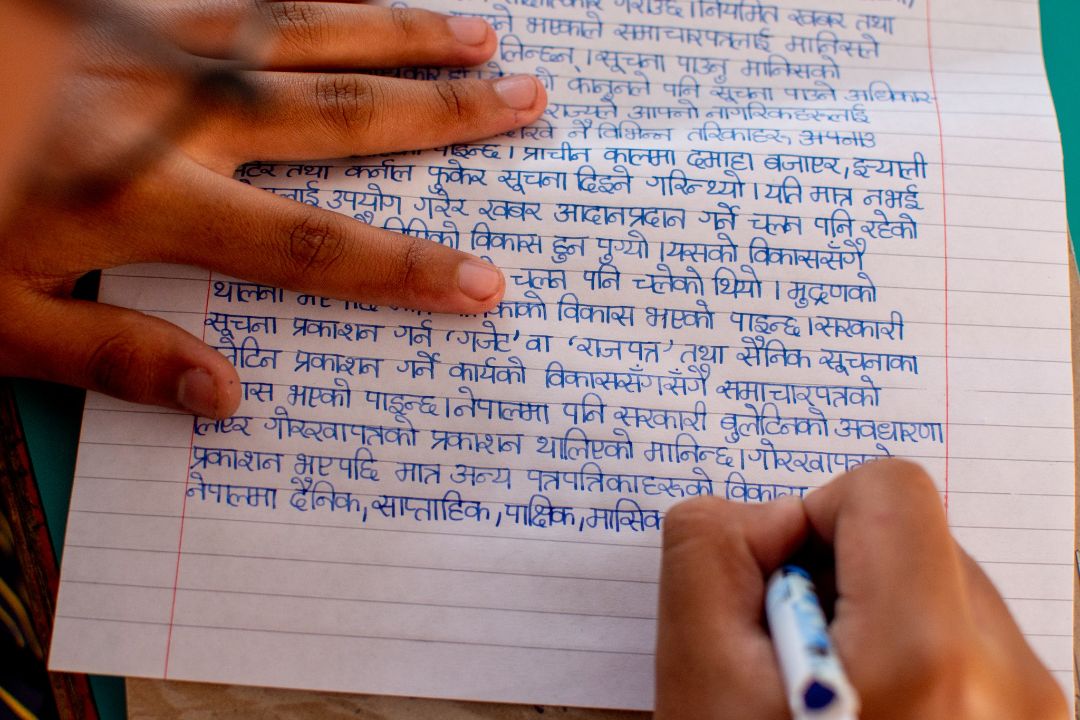 गराउँछ । नियमित खबर तथा
भएकाले समाचारपत्रलाई मानिसले
लिन्छन् । सूचना पाउनु मानिसको
कानूनले पनि सूचना पाउने अधिकार
राज्यले आफ्नो नागरिकहरूलाई
नै विभिन्न तरिकाहरू अपनाउ
पाइन्छ । प्राचीन कालमा दमाहा बजाएर, झ्याली
तथा कर्नाल फुकेर सूचना दिइने गरिन्थ्यो । यति मात्र नभई
उपयोग गरेर खबर आदानप्रदान गर्ने चलन पनि रहेको
विकास हुन पुग्यो । यसको विकाससँगै
चलन पनि चलेको थियो । मुद्रणको
थालनी विकास भएको पाइन्छ । सरकारी
सूचना प्रकाशन गर्न 'गजेट' वा 'राजपत्र' तथा सैनिक सूचनाका
प्रकाशन गर्ने कार्यको विकाससँगसँगै समाचारपत्रको
भएको पाइन्छ । नेपालमा पनि सरकारी बुलेटिनको अवधारणा
लिएर गोरखापत्रको प्रकाशन थालिएको मानिन्छ । गोरखापत्रको
प्रकाशन भएपछि मात्र अन्य पत्रपत्रिकाहरूको
नेपालमा दैनिक, साप्ताहिक, पाक्षिक, मासिक